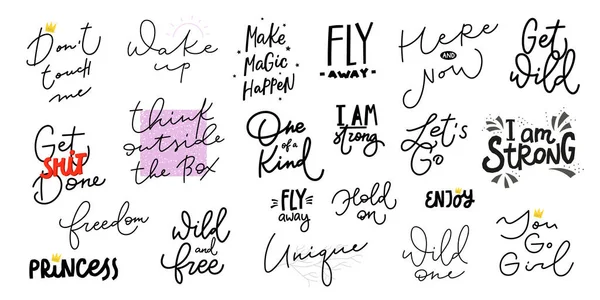 Don't
touch
me
Wake
up
Make
Magic
Happen
FLY
AWAY
Here
AND
Now
Get
Wild
Get
SHIT
Done
think
outside
the Box
One
of a
Kind
I AM
strong
Let's
Go
I am
STRONG
freedom
Wild
and
free
FLY
away
Hold
on
ENJOY
You
Go
Girl
PRINCESS
Unique
Wild
one